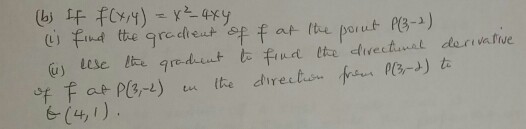 (b) If f(x,y) = x²-4xy
(i) find the gradient of f at the point P(3-2)
(ii) use the gradient to find the directional derivative
of f at P(3,-2) in the direction from P(3,-2) to
Q(4,1).